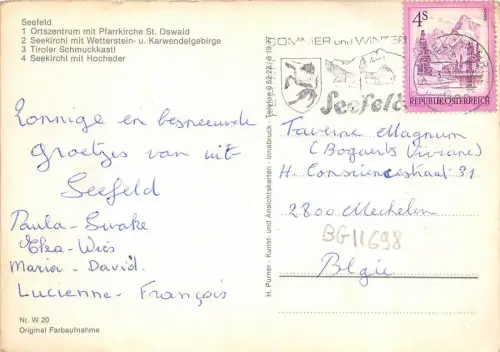 Seefeld
1 Ortszentrum mit Pfarrkirche St. Oswald
2 Seekirchl mit Wetterstein- u. Karwendelgebirge
3 Tiroler Schmuckkastl
4 Seekirchl mit Hocheder
Zonnige en besneeuwde
groetjes van uit
Seefeld
Paula - Swake
Elza - Wies
Maria - David.
Lucienne - François
Nr. W 20
Original Farbaufnahme
H. Purner - Kunst- und Ansichtskarten - Innsbruck - Telefon
SOMMER und WINTER
Seefeld
4S
REPUBLIK ÖSTERREICH
Taverne Magnum
(Bogaerts Viviane)
H. Consciencestraat 31
2800 Mechelen
BG11698
Blgie